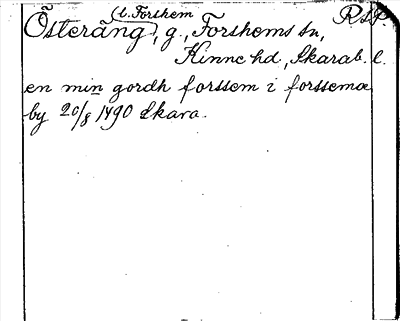 (t. Forshem
RAP.
Österäng), g., Forshems sn,
Kinne hd, Skarab. l.
en min gordh forssem i forssema
by 20/8 1490 Skara.